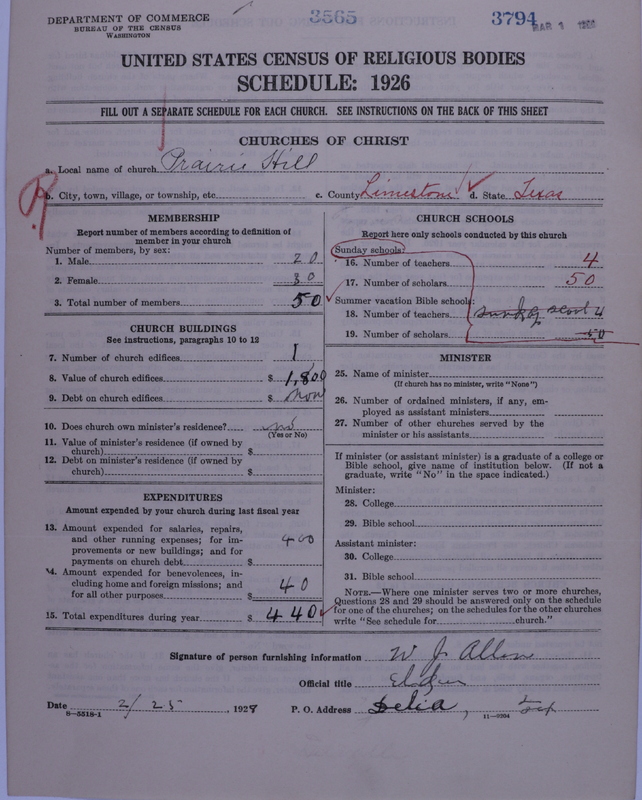 DEPARTMENT OF COMMERCE
BUREAU OF THE CENSUS
WASHINGTON
3565
3794
MAR 1
UNITED STATES CENSUS OF RELIGIOUS BODIES
SCHEDULE: 1926
FILL OUT A SEPARATE SCHEDULE FOR EACH CHURCH. SEE INSTRUCTIONS ON THE BACK OF THIS SHEET
CHURCHES OF CHRIST
a. Local name of church Prairie Hill
b. City, town, village, or township, etc. c. County Limestone d. State Texas
MEMBERSHIP
Report number of members according to definition of
member in your church
Number of members, by sex:
1. Male 20
2. Female 30
3. Total number of members 50
CHURCH BUILDINGS
See instructions, paragraphs 10 to 12
7. Number of church edifices 1
8. Value of church edifices $ 1,800
9. Debt on church edifices $ none
10. Does church own minister's residence? no
(Yes or No)
11. Value of minister's residence (if owned by
church) $
12. Debt on minister's residence (if owned by
church) $
EXPENDITURES
Amount expended by your church during last fiscal year
13. Amount expended for salaries, repairs,
and other running expenses; for im-
provements or new buildings; and for
payments on church debt $ 400
14. Amount expended for benevolences, in-
cluding home and foreign missions; and
for all other purposes $ 40
15. Total expenditures during year $ 440
CHURCH SCHOOLS
Report here only schools conducted by this church
Sunday schools:
16. Number of teachers 4
17. Number of scholars 50
Summer vacation Bible schools:
18. Number of teachers sunday scool 4
19. Number of scholars 50
MINISTER
25. Name of minister
(If church has no minister, write "None")
26. Number of ordained ministers, if any, em-
ployed as assistant ministers
27. Number of other churches served by the
minister or his assistants
If minister (or assistant minister) is a graduate of a college or
Bible school, give name of institution below. (If not a
graduate, write "No" in the space indicated.)
Minister:
28. College
29. Bible school
Assistant minister:
30. College
31. Bible school
NOTE.—Where one minister serves two or more churches,
Questions 28 and 29 should be answered only on the schedule
for one of the churches; on the schedules for the other churches
write "See schedule for church."
Signature of person furnishing information W J Allen
Official title
Date 2/25, 1928 P. O. Address Delia, Tex
8-5518-1
11-9204